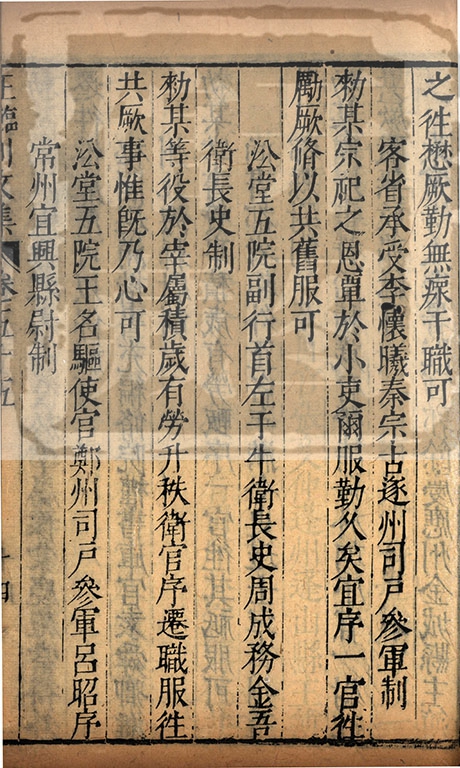 之徃懋厥勤無瘝干職可
客省承受李懷曦秦宗古逐州司戶參軍制
勑某宗祀之恩單於小吏爾服勤久矣宜序一官徃
勵厥脩以共舊服可
㳂堂五院副行首左千牛衛長史周成務金吾
衛長史制
勑某等役於宰屬積歲有勞升秩衛官序遷職服徃
共厥事惟旣乃心可
㳂堂五院王名驅使官鄭州司戶參軍呂昭序
常州宜興縣尉制
王臨川文集 卷五十五 十四